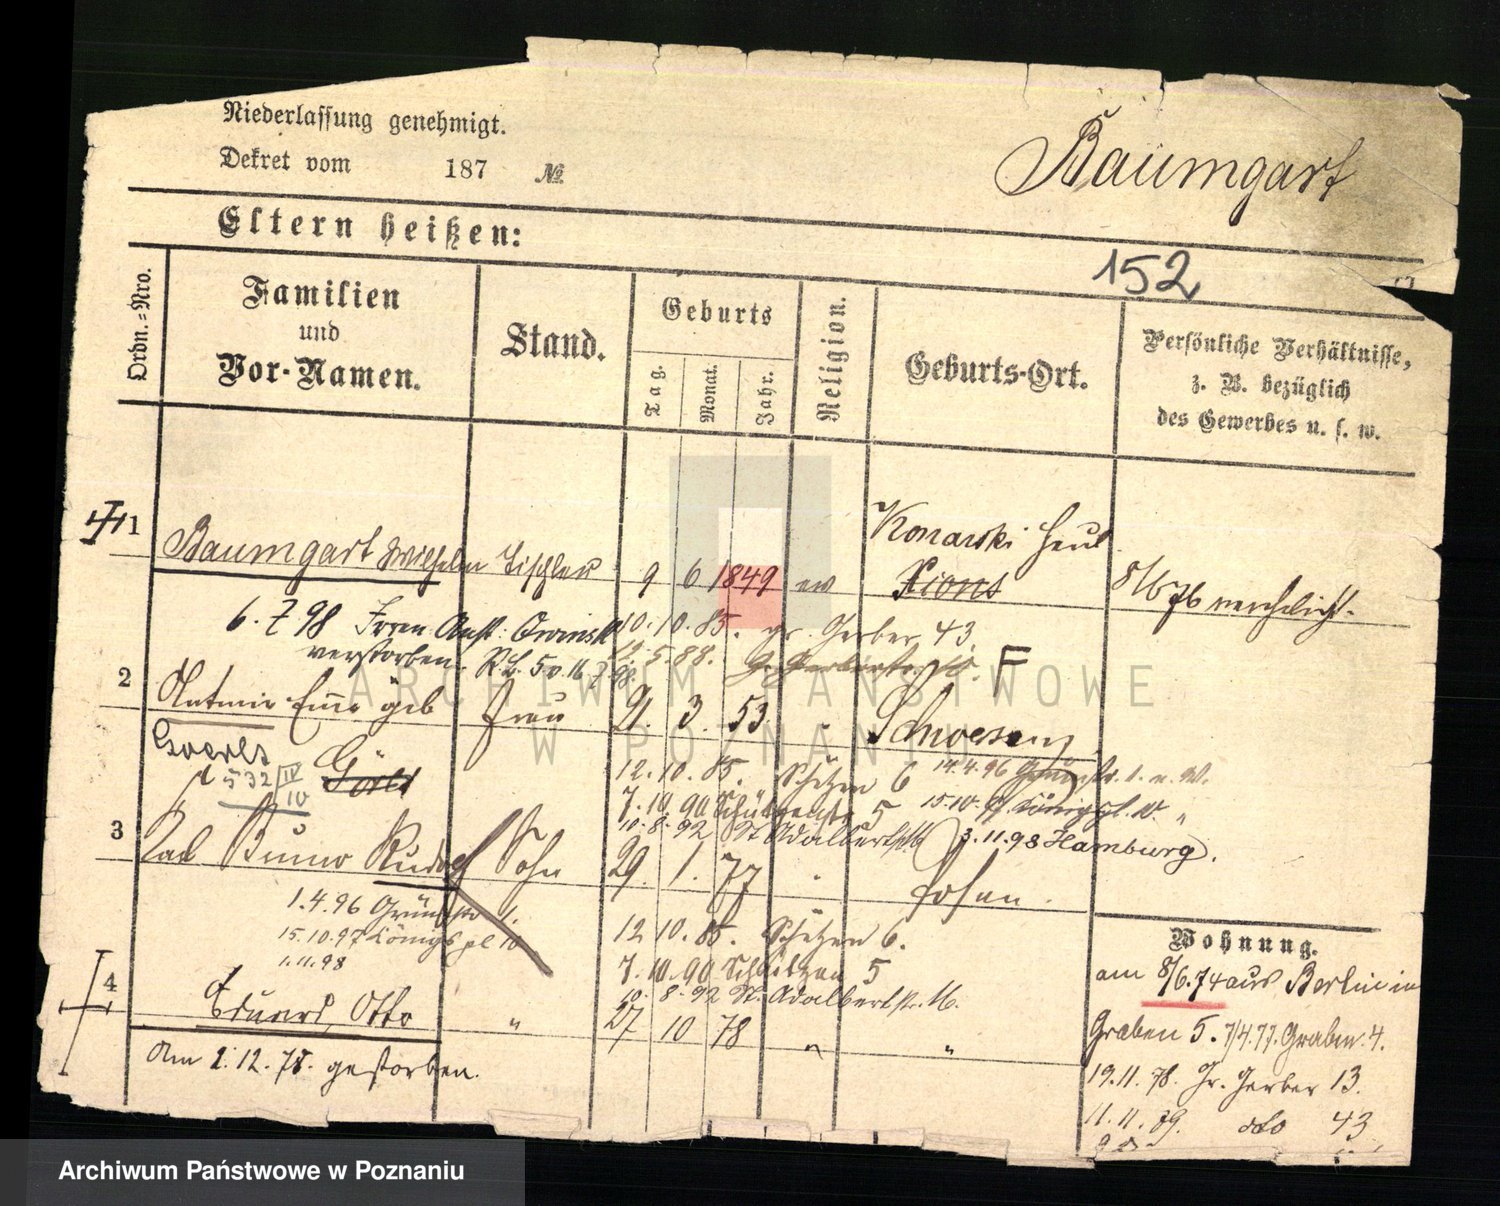 Niederlassung genehmigt.
Dekret vom 187 №
Baumgart
Eltern heißen:
152
Ordn.-Nro.
Familien und Vor-Namen.
Stand.
Geburts
Tag.
Monat.
Jahr.
Religion.
Geburts-Ort.
Persönliche Verhältnisse,
z. B. bezüglich
des Gewerbes u. s. w.
1 Baumgart Wilhelm Tischler 9 6 1849 ev Konarski
Xions
8/6 76 verehelicht.
6. 7 98 Irren Anst: Owinsk 10.10.85. gr. Gerber 43
verstorben. 5.88. F
2 Emma geb Frau 21. 3. 53
Goerlt
Görlt
532 IV/10
12.10.85. Schützen 6 14.4.96 Grünstr. 1.
7.10.90 Schützenstr 5 15.10.97 Königspl. 10
10.8.92 St Adalbertstr 16 3.11.98 Hamburg.
3 Bruno Rudolf Sohn 29. 1. 77 Posen.
1.4.96 Grünstr 1.
15.10.97 Königspl 10
1.11.98
12 10. 85. Schützen 6.
7.10.90 Schützen 5
10.8.92 St. Adalbertstr. 16.
4 Eduard, Otto " 27 10 78 " "
Am 2.12.78. gestorben.
Wohnung.
am 8/6.74 aus Berlin in
Graben 5. 7/4.77. Graben 4.
19.11.78. Gr. Gerber 13.
11.11.79. dto 43
ARCHIWUM PAŃSTWOWE
W POZNANIU
Archiwum Państwowe w Poznaniu